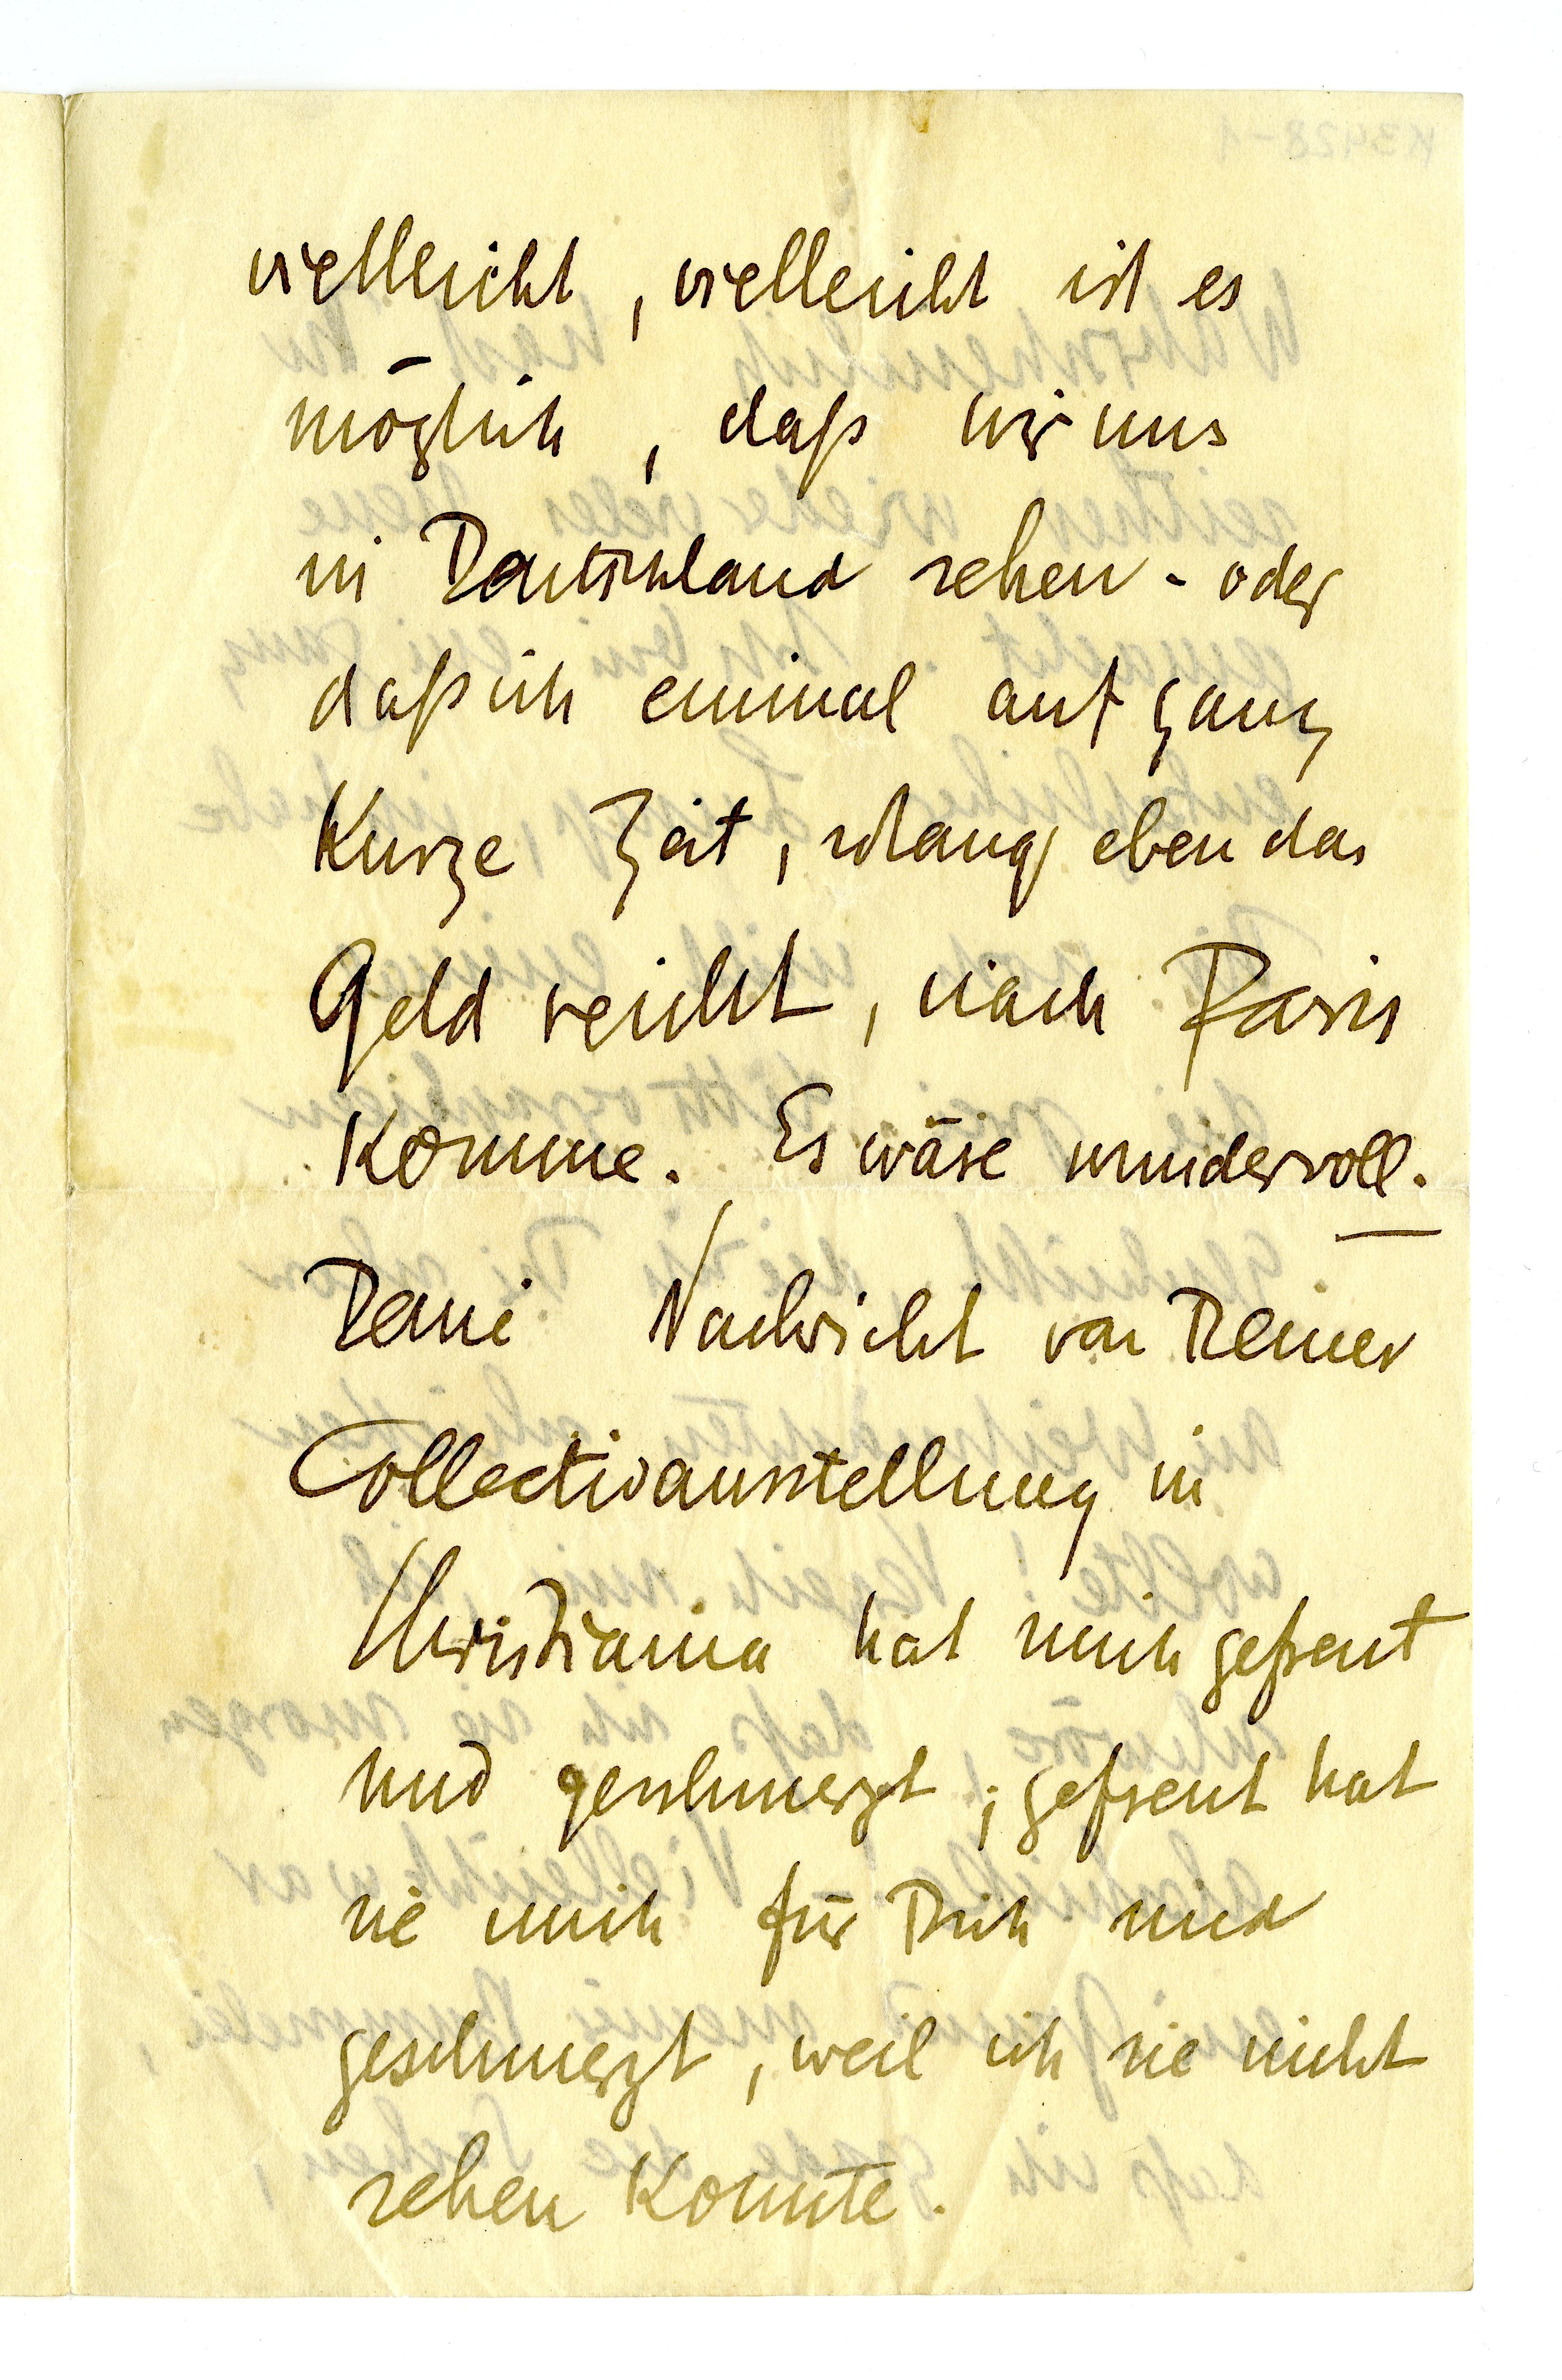 vielleicht, vielleicht ist es
möglich, daß wir uns
in Deutschland sehen - oder
daß ich einmal auf ganz
kurze Zeit, solang eben das
Geld reicht, nach Paris
komme. Es wäre wundervoll.
Deine Nachricht von Deiner
Collectivausstellung in
Christiania hat mich gefreut
und geschmerzt; gefreut hat
sie mich für Dich und
geschmerzt, weil ich sie nicht
sehen konnte.